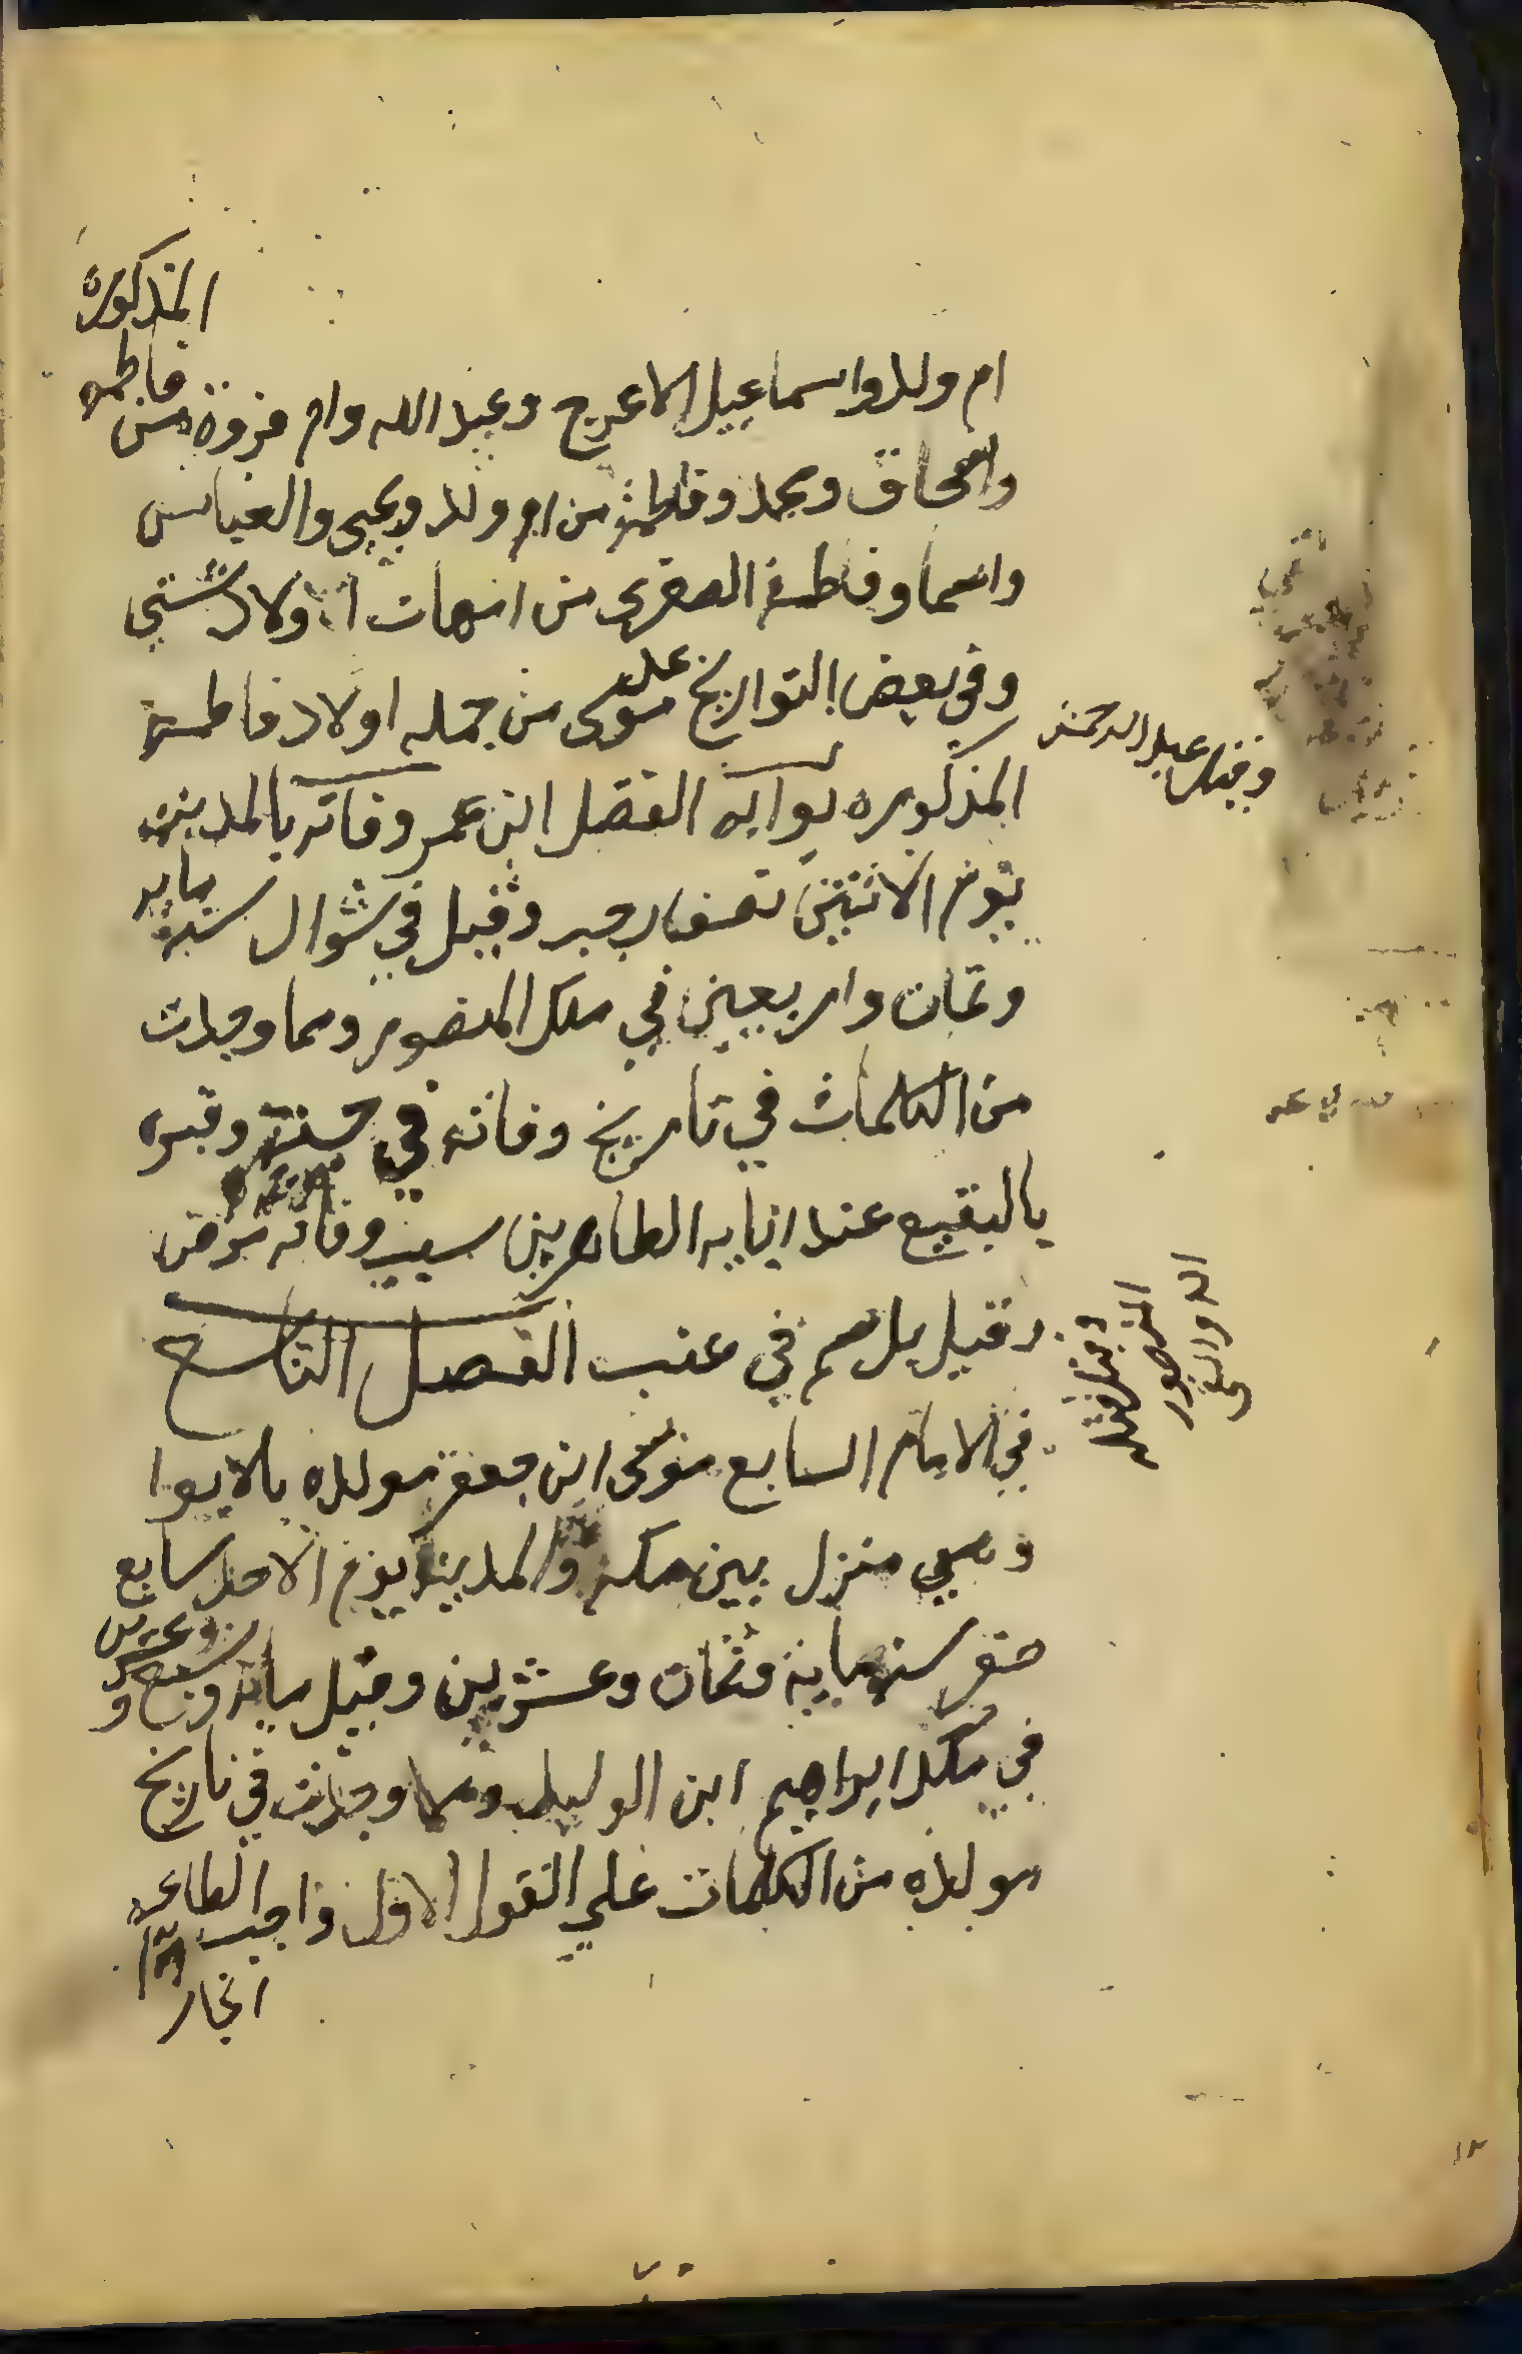 ام ولد واسماعيل الاعرج وعبد الله وام فروة من فاطمه
المذكوره
واسحاق ومحمد وفاطمة من ام ولد ويحيى والعباس
واسما وفاطمة الصغرى من امهات اولاد شتي
وفي بعض التواريخ موسى من جمله اولاد فاطمة
المذكوره بوابه الفضل ابن عمر وفاته بالمدينه
يوم الاثنين نصف رجب وقيل في شوال سنة مايه
وثمان واربعين في ملك المنصور ومما وجدت
من الكلمات في تاريخ وفاته في جنته وقبره
بالبقيع عند ابايه الطاهرين سبب وفاته مرض
وقيل بل سم في عنب الفصل التاسع
في الامام السابع موسى ابن جعفر مولده بالابوا
وهي منزل بين مكة والمدينة يوم الاحد سابع
صفر سنة ماية وثمان وعشرين وقيل ماية وتسع وعشرين
في ملك ابراهيم ابن الوليد ومما وجدت في تاريخ
مولده من الكلمات علي القول الاول واجب الطاعه
انجاز
وقيل عبد الرحمن
وقيل قتله
المنصور
الدوانيقي